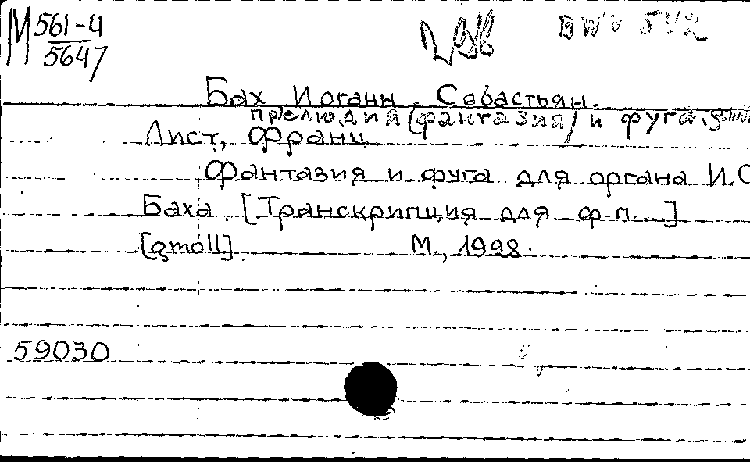 М 561-4
5647
BWV 542
Бах Иоганн Себастьян.
прелюдия (фантазия) и фуга,
Лист, Франц
Фантазия и фуга для органа И.С
Баха [Транскрипция для ф.п....]
[gmoll] М., 1998.
59030